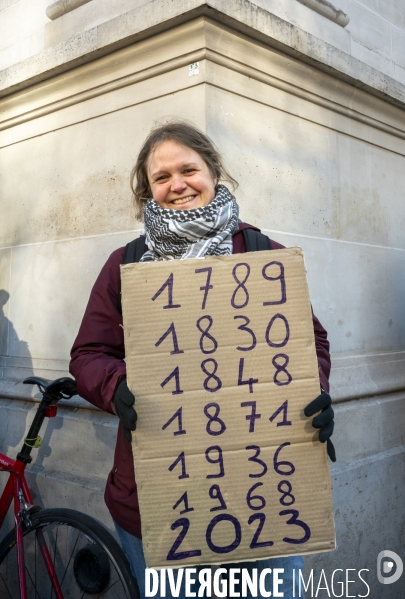 1789
1830
1848
1871
1936
1968
2023
DIVERGENCE IMAGES
D